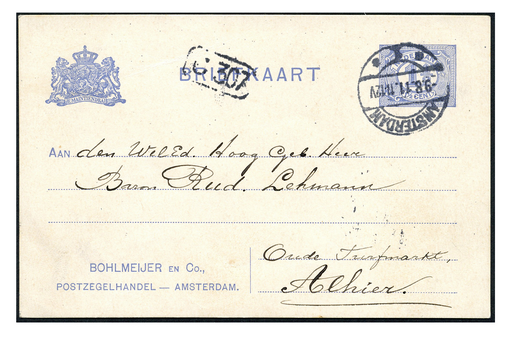 BRIEFKAART
307
AMSTERDAM
9.8.11. 11-12V
AAN den WelEd. Hoog Geb. Heer
Baron Rud. Lehmann
Oude Turfmarkt,
Alhier.
BOHLMEIJER EN Co.,
POSTZEGELHANDEL — AMSTERDAM.